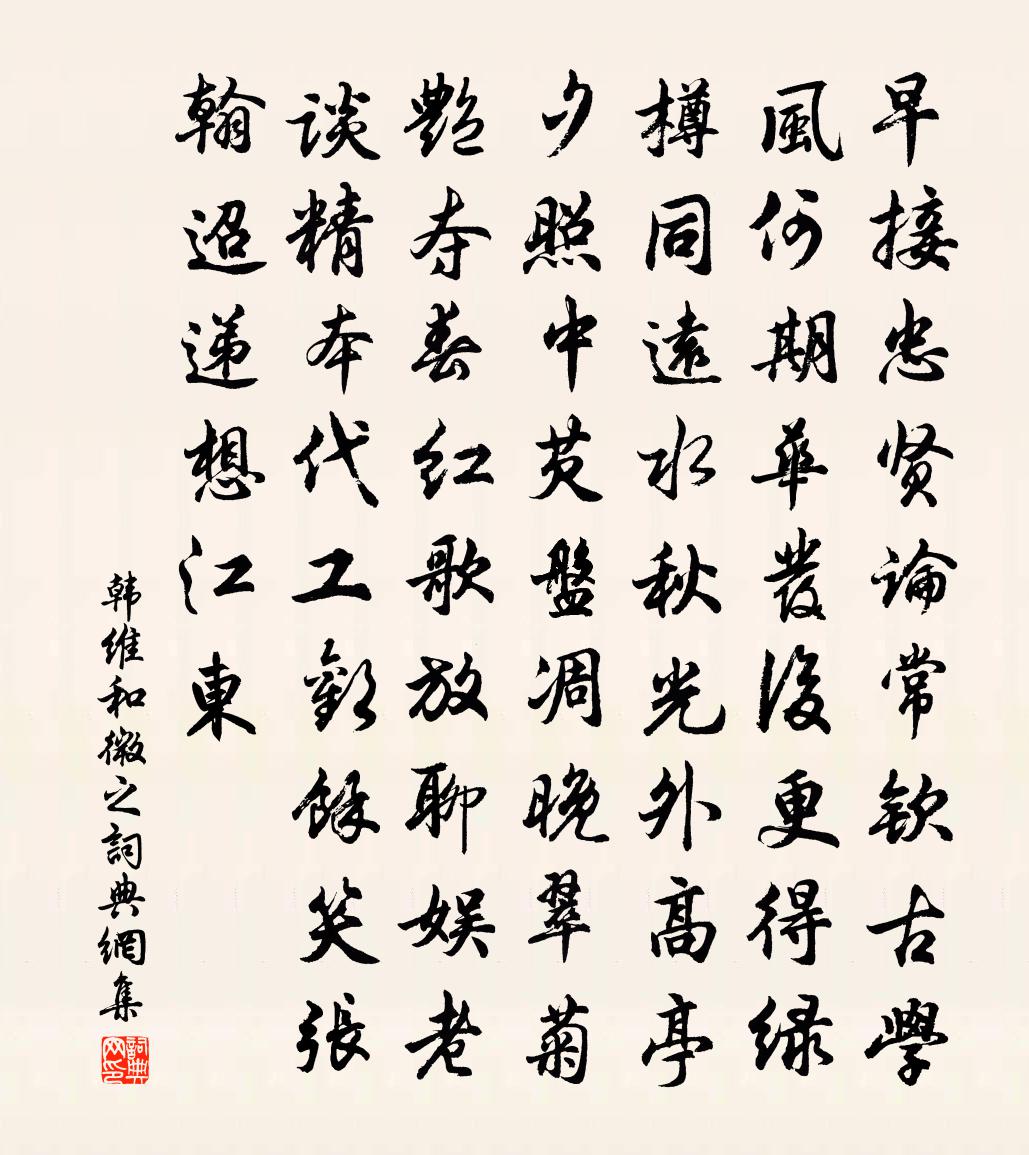 早接忠贤論常欽古學
風何期華發後更得绿
樽同遠水秋光外高亭
夕照中芡盤凋晚翠菊
艷夺春红歌放聊娱老
談精本代工歡餘笑張
翰迢递想江東
韩维和微之詞典網集
詞典网印